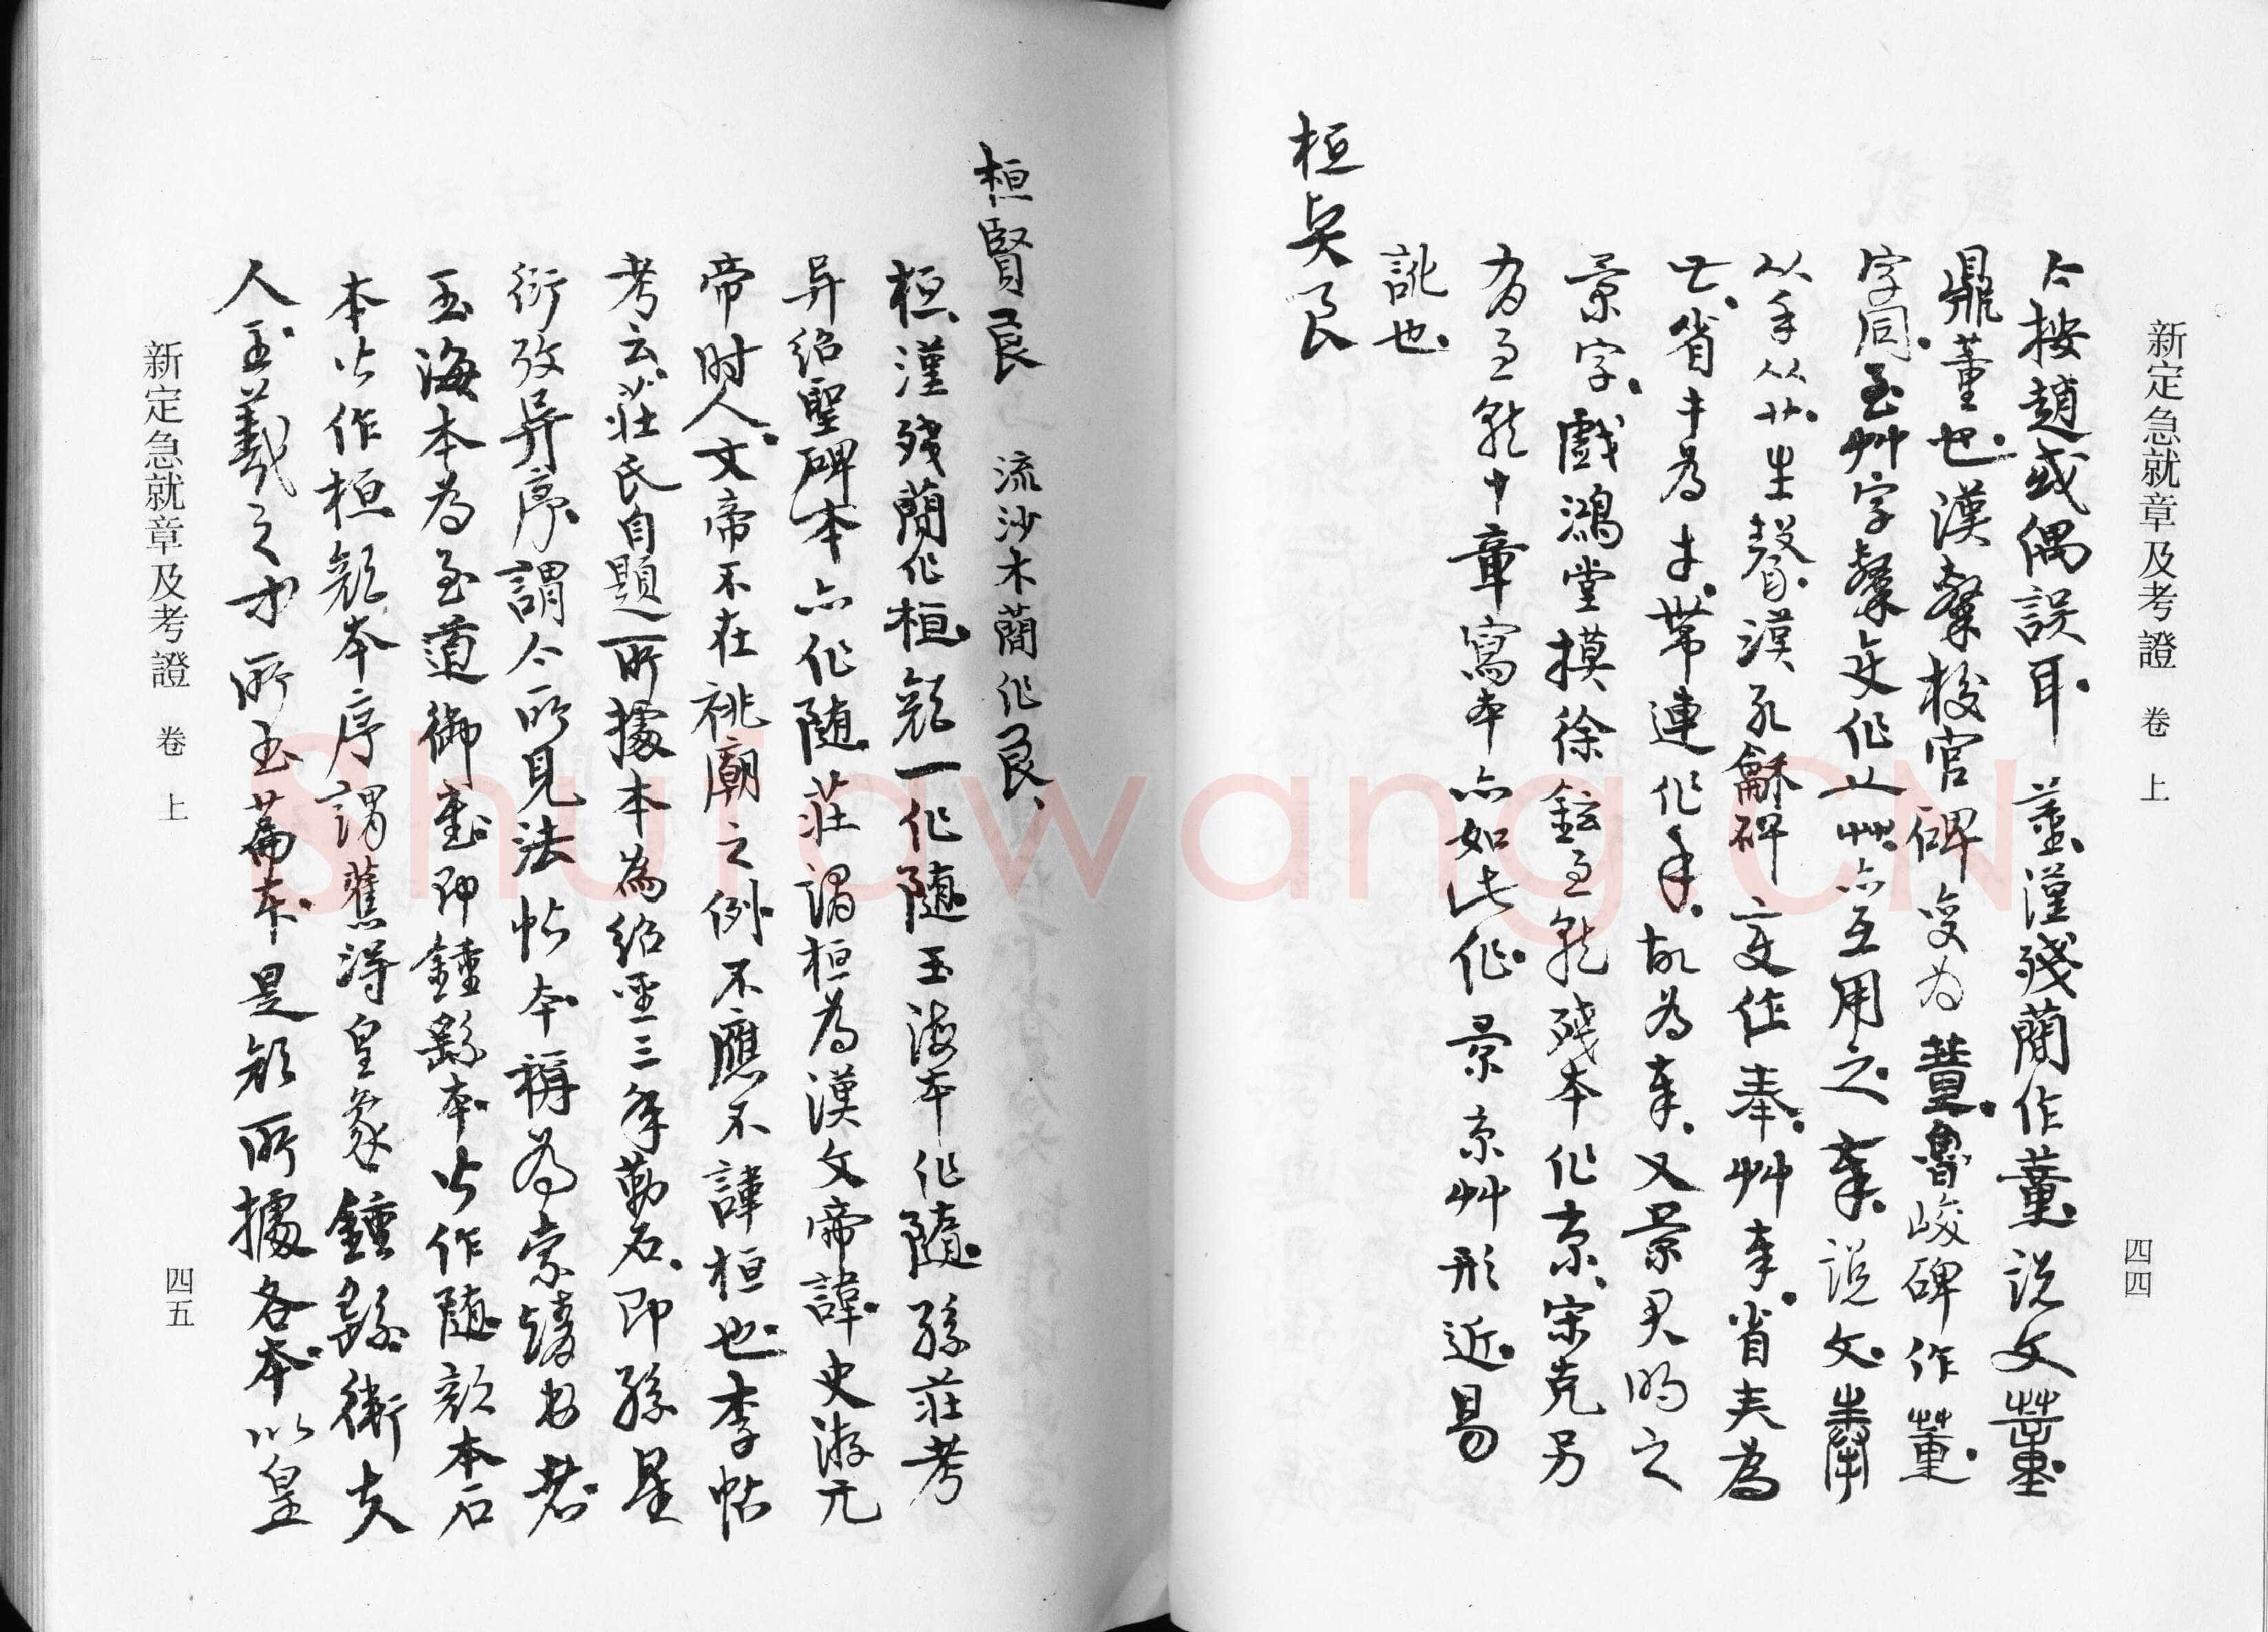 新定急就章及考證 卷 上
四四
今按趙或偶誤耳 董漢殘蘭作董說文董
鼎董也漢 校官碑變為 魯峻碑作董
字同 艸字 文作 艸亦互用之 奉說文
从手从廾丰聲漢孔龢碑 作奉艸奉省夫為
省丰為 帶連作 故為奉又景君 之
景字戲鴻堂摸徐鉉急就殘本作京宋克另
有急就十章寫本亦如此作景京艸形近易
訛也
桓吳良
桓賢良 流沙木蘭作良
桓漢殘蘭作桓顏一作隨玉海本作隨孫莊考
异紹聖碑本亦作隨莊謂桓為漢文帝諱史游元
帝時人文帝不在祧廟之例不應不諱桓也李帖
考云莊氏自題所據本為紹聖三年勒石即孫星
衍攷异序謂今所見法帖本稱為索靖書者
玉海本為至道御書即鍾繇本皆作隨顏本石
本皆作桓顏本序謂舊得皇象鍾繇衛夫
人王羲之 所書篇本是顏所據各本以皇
新定急就章及考證 卷 上
四五
Shufawang.CN